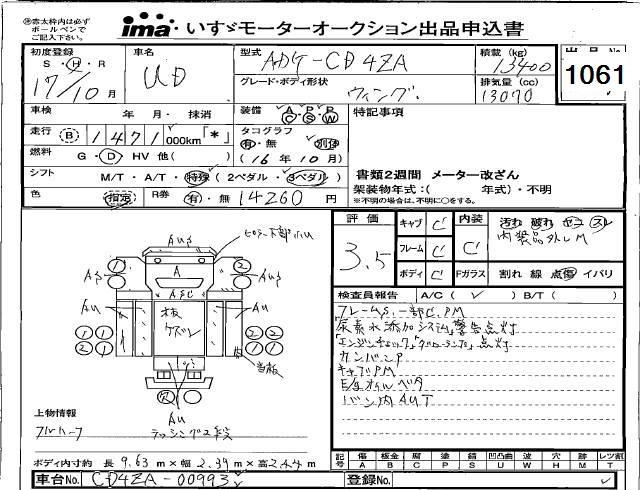 ※赤太枠内は必ず
ボールペンで
ご記入下さい。
ima いすゞモーターオークション出品申込書
初度登録
S・H・R
17/10月
車名
UD
型式
ADG-CD4ZA
積載 (kg)
13400
グレード・ボディ形状
ウィング
排気量 (cc)
13070
出品No
1061
車検 年 月・抹消
装備 A C P S P W
特記事項
走行 B 1471 000km「*」
タコグラフ
有・無 別体
燃料 G・D・HV 他( )
(16年10月)
シフト M/T・A/T・特殊 (2ペダル・3ペダル)
書類2週間 メーター改ざん
架装物年式:( 年式)・不明
※不明の場合は、不明に○をする。
色 指定 R券 有・無 14260 円
評価
3.5
キャブ C
フレーム C
ボディ C
内装
C
Fガラス
汚れ 破れ コゲ スレ
内装品外しM
割れ 線 点傷 イバリ
検査員報告 A/C( ✓ ) B/T( )
フレームS.一部C.PM
尿素水添加システム警告点灯
「エンジンチェック」「グローランプ」点灯
カンバンP
キャブPM
E/gオイルベタ
バン内AUT
AuS
AS
AuS
A
ASC
Au
Au
板
ケズレ
内
当板
Au
上物情報
フルハーフ
ラッシング2段
ボディ内寸約 長 9.63 m×幅 2.39 m×高 2.44 m
車台No. CD4ZA-00993
登録No.
記号
傷 A
板金 B
腐 C
塗 P
錆 S
凹凸凸凹 U
波 W
穴 H
跡 M
レツ割 T